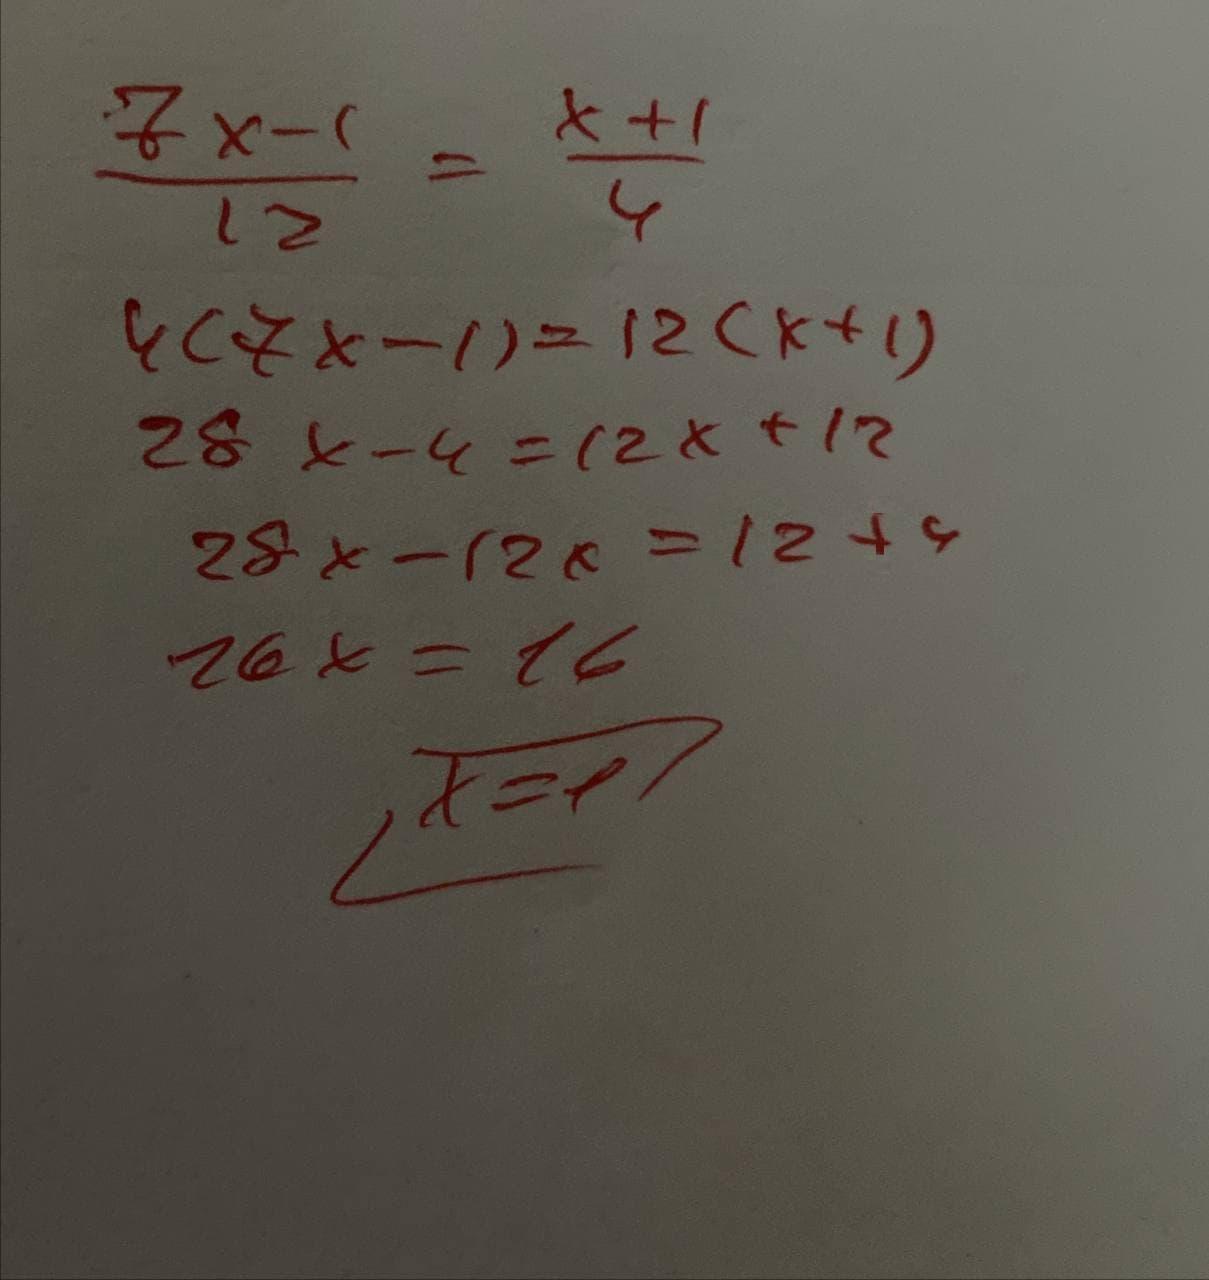 7x-1/12 = x+1/4
4(7x-1)=12(x+1)
28x-4=12x+12
28x-12x=12+4
16x=16
x=1